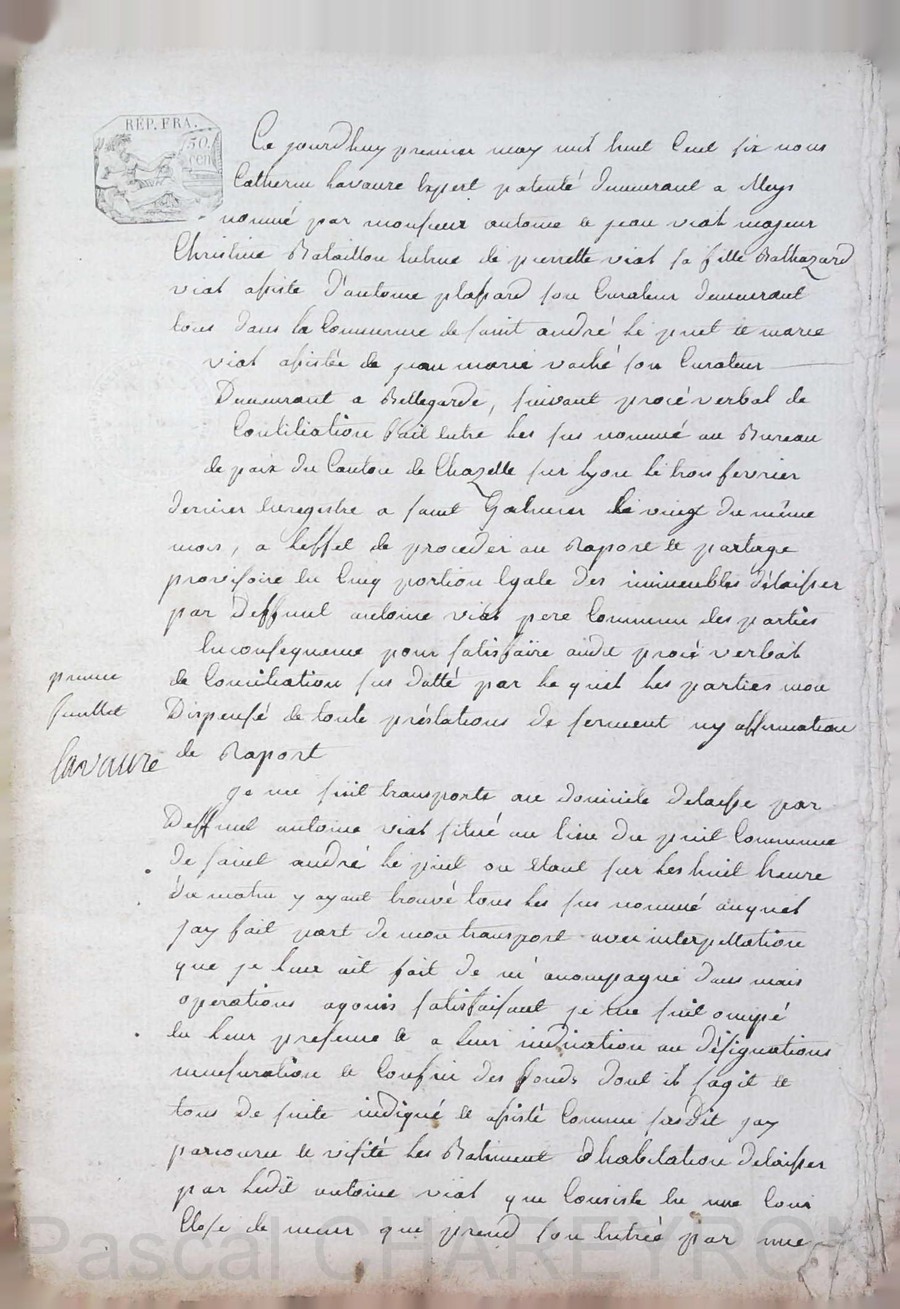 REP. FRA.
50.
cen
Ce jourdhuy premier may mil huit Cent six nous
Catherin Lavaure Expert patenté demeurant a Meys
nommé par monsieur antoine et jean viat majeur
Christine Bataillon tutrice de pierrette viat sa fille Balthazard
viat assisté d'antoine plassard son Curateur demeurant
tous dans la Commune de saint andré le puit et marie
viat assistée de jean marie vaché son Curateur
Demeurant a Bellegarde, suivant procé verbal de
Contiliation fait entre les sus nommé au Bureau
de paix du Canton de Chazelle sur lyon le trois fevrier
dernier Enregistre a saint Galmier le vingt du même
mois, a leffet de proceder au Raport et partage
provisoire en Cinq portion Egale des immeubles délaisser
par Deffunt antoine viat pere Commun des parties
Enconsequence pour satisfaire audit procé verbait
de Conciliation sus datté par le quel les parties mon
Dispensé de toute préstations de serment ny affirmation
de Raport
prumie
feuillet
Lavaure
je me suit transporté au domicile delaisse par
Deffunt antoine viat situé au lieu du puit Commune
de saint andré le puit ou Etant sur les huit heure
du matin y ayant trouvé tous les sus nommé auquel
jay fait part de mon transport avec interpellation
que je leur ait fait de m'acompagné dans mais
operations aquois satisfaisant je me suit ocupé
en leur presence et a leur indication au désignations
mensuration et Confin des fonds dont il sagit et
tous de suite indiqué et assisté Comme susdit jay
parcouru et visité les Batiment dhabitation delaisser
par ledit antoine viat que Consiste en une Cour
Close de meur que prend son entrée par une
Pascal CHAREYRON